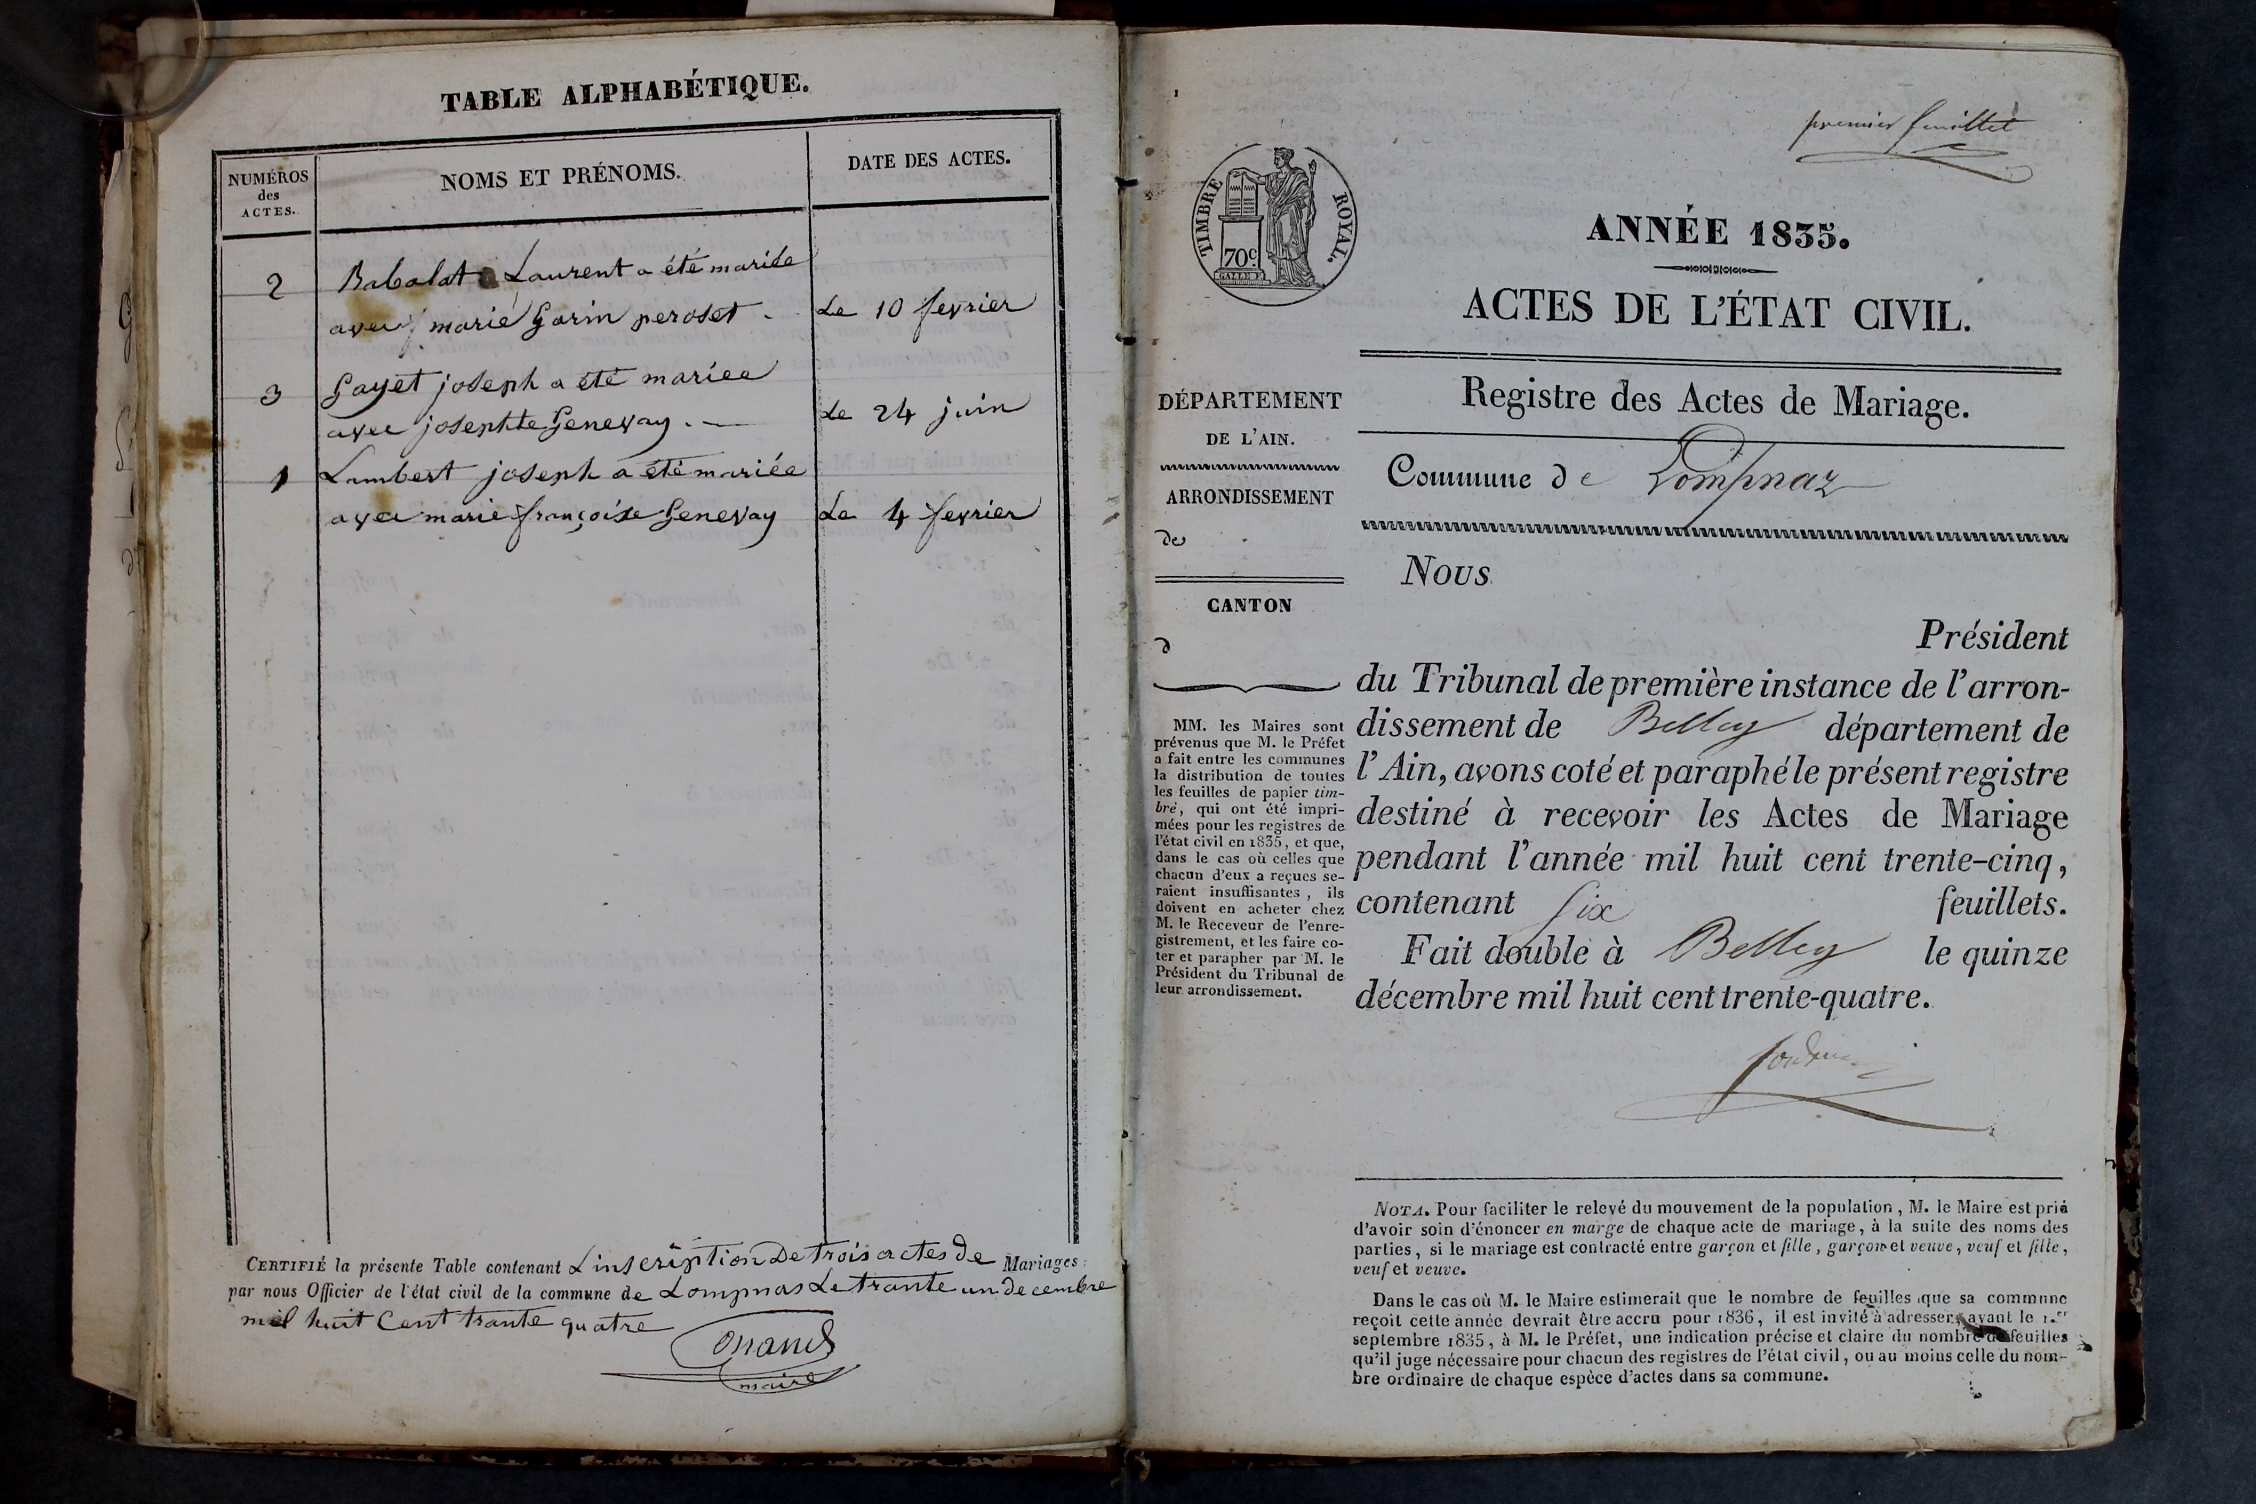 TABLE ALPHABÉTIQUE.
NUMÉROS
des
ACTES.
NOMS ET PRÉNOMS.
DATE DES ACTES.
2
Babolat Laurent a été mariée
avec marie Gorin peroset
Le 10 fevrier
3
Gayet joseph a été mariee
avec josephte Genevay.
Le 24 juin
1
Lambert joseph a été mariée
avec marie françoise Genevay
Le 4 fevrier
CERTIFIÉ la présente Table contenant Linscription De trois actes de Mariages;
par nous Officier de l'état civil de la commune de Lompnas Le trante un decembre
mil huit Cent trante quatre
maire
premier feuillet
TIMBRE ROYAL.
70c.
ANNÉE 1835.
ACTES DE L'ÉTAT CIVIL.
Registre des Actes de Mariage.
Commune de Lompnaz
DÉPARTEMENT
DE L'AIN.
ARRONDISSEMENT
de
CANTON
d
MM. les Maires sont
prévenus que M. le Préfet
a fait entre les communes
la distribution de toutes
les feuilles de papier tim-
bré, qui ont été impri-
mées pour les registres de
l'état civil en 1835, et que,
dans le cas où celles que
chacun d'eux a reçues se-
raient insuffisantes, ils
doivent en acheter chez
M. le Receveur de l'enre-
gistrement, et les faire co-
ter et parapher par M. le
Président du Tribunal de
leur arrondissement.
Nous
Président
du Tribunal de première instance de l'arron-
dissement de Belley département de
l'Ain, avons coté et paraphé le présent registre
destiné à recevoir les Actes de Mariage
pendant l'année mil huit cent trente-cinq,
contenant six feuillets.
Fait double à Belley le quinze
décembre mil huit cent trente-quatre.
NOTA. Pour faciliter le relevé du mouvement de la population, M. le Maire est prié
d'avoir soin d'énoncer en marge de chaque acte de mariage, à la suite des noms des
parties, si le mariage est contracté entre garçon et fille, garçon et veuve, veuf et fille,
veuf et veuve.
Dans le cas où M. le Maire estimerait que le nombre de feuilles que sa commune
reçoit cette année devrait être accru pour 1836, il est invité à adresser, avant le 1.er
septembre 1835, à M. le Préfet, une indication précise et claire du nombre de feuilles
qu'il juge nécessaire pour chacun des registres de l'état civil, ou au moins celle du nom-
bre ordinaire de chaque espèce d'actes dans sa commune.